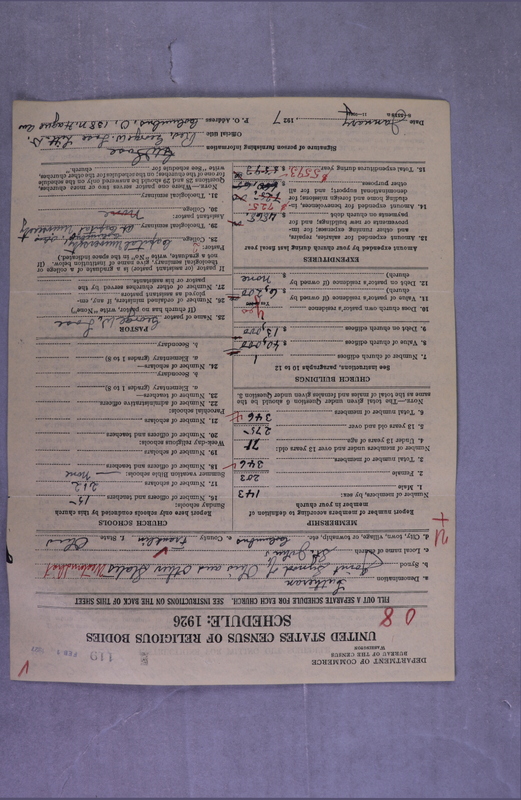 DEPARTMENT OF COMMERCE
BUREAU OF THE CENSUS
WASHINGTON
119
UNITED STATES CENSUS OF RELIGIOUS BODIES
SCHEDULE: 1926
FILL OUT A SEPARATE SCHEDULE FOR EACH CHURCH. SEE INSTRUCTIONS ON THE BACK OF THIS SHEET
a. Denomination Lutheran
b. Synod Joint Synod of Ohio and Other States
c. Local name of church St. John's
d. City, town, village, or township, etc. Columbus e. County Franklin f. State Ohio
MEMBERSHIP
Report number of members according to definition of member in your church
Number of members, by sex:
1. Male 143
2. Female 203
3. Total number of members, 346
Number of members under and over 13 years old:
4. Under 13 years of age, 71
5. 13 years old and over 275
6. Total number of members 346
NOTE.—The total given under Question 6 should be the same as the total of males and females given under Question 3.
CHURCH BUILDINGS
See instructions, paragraphs 10 to 12
7. Number of church edifices 1
8. Value of church edifices $ 40,000
9. Debt on church edifices $ 13,000
10. Does church own pastor's residence Yes
11. Value of pastor's residence (if owned by church) $ 6,200
12. Debt on pastor's residence (if owned by church) $ none
EXPENDITURES
Amount expended by your church during last fiscal year
13. Amount expended for salaries, repairs, and other running expenses; for improvements or new buildings; and for payments on church debt $ 4868
14. Amount expended for benevolences, including home and foreign missions; for denominational support; and for all other purposes $ 725
15. Total expenditures during year $ 5593
CHURCH SCHOOLS
Report here only schools conducted by this church
Sunday schools:
16. Number of officers and teachers 15
17. Number of scholars 212
Summer vacation Bible schools: none
18. Number of officers and teachers
19. Number of scholars
Week-day religious schools:
20. Number of officers and teachers
21. Number of scholars
Parochial schools:
22. Number of administrative officers
23. Number of teachers—
a. Elementary (grades 1 to 8)
b. Secondary
24. Number of scholars—
a. Elementary (grades 1 to 8)
b. Secondary
PASTOR
25. Name of pastor George W. Lose
(If church has no pastor, write "None")
26. Number of assistant pastors, if any, employed as assistant pastors
27. Number of other churches served by the pastor or his assistant
If pastor (or assistant pastor) is a graduate of a college or theological seminary, give name of institution below. (If not a graduate, write "No" in space indicated)
Pastor:
28. College, Capital University
29. Theological seminary,
Assistant pastor: None
30. College,
31. Theological seminary,
Signature of person furnishing information G W Lose
Official title Rev. George W. Lose
P. O. Address Columbus, O., 138 N. Hague Ave
Date January, 1927